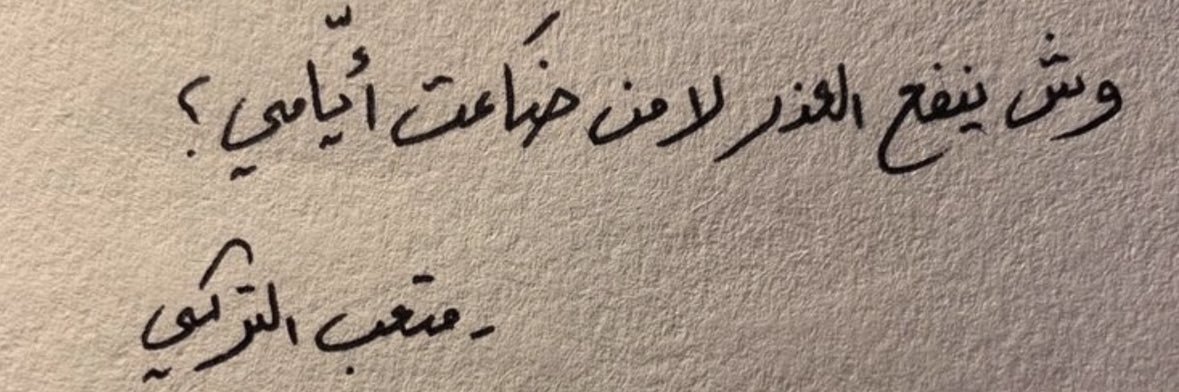 وش ينفع العذر لا من ضاعت أيّامي ؟
- متعب التركي